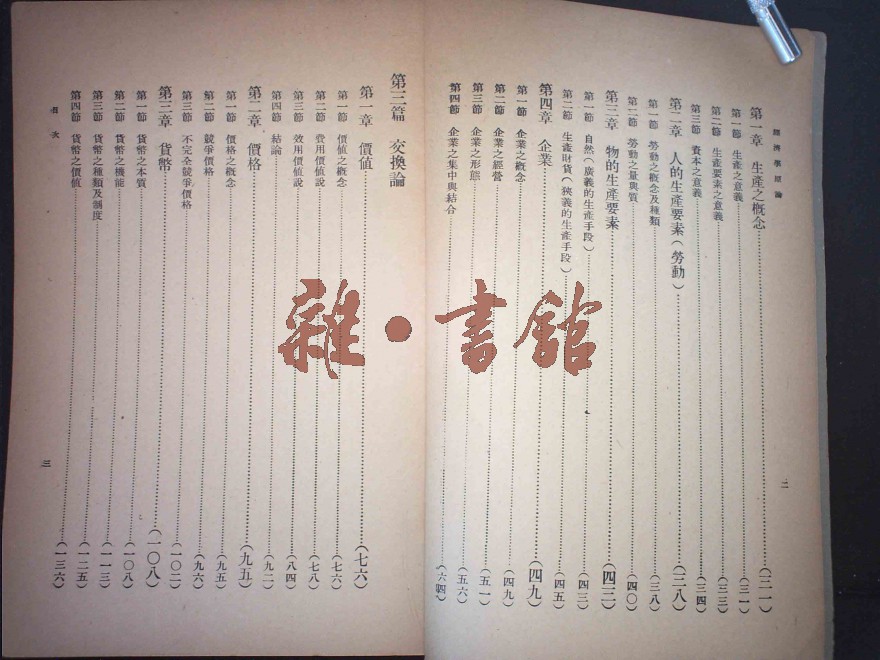 經濟學原論
第一章 生產之概念……(三一)
第一節 生產之意義……(三一)
第二節 生產要素之意義……(三三)
第三節 資本之意義……(三四)
第二章 人的生產要素(勞動)……(三八)
第一節 勞動之概念及種類……(三八)
第二節 勞動之量與質……(四〇)
第三章 物的生產要素……(四三)
第一節 自然(廣義的生產手段)……(四三)
第二節 生產財貨(狹義的生產手段)……(四五)
第四章 企業……(四九)
第一節 企業之概念……(四九)
第二節 企業之經營……(五一)
第三節 企業之形態……(五六)
第四節 企業之集中與結合……(六四)
二
第三篇 交換論
第一章 價値……(七六)
第一節 價値之概念……(七六)
第二節 費用價値說……(七八)
第三節 效用價値說……(八四)
第四節 結論……(九二)
第二章 價格……(九五)
第一節 價格之概念……(九五)
第二節 競爭價格……(九六)
第三節 不完全競爭價格……(一〇二)
第三章 貨幣……(一〇八)
第一節 貨幣之本質……(一〇八)
第二節 貨幣之機能……(一一三)
第三節 貨幣之種類及制度……(一二五)
第四節 貨幣之價値……(一三六)
目次
三
雜·書館